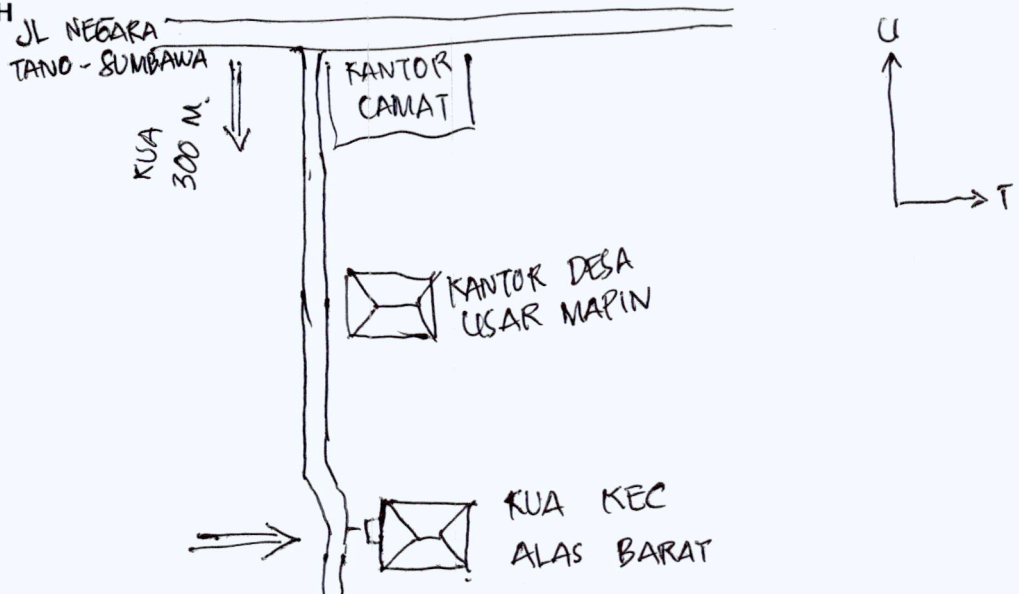 H
JL NEGARA
TANO - SUMBAWA
KUA
300 M.
KANTOR
CAMAT
U
T
KANTOR DESA
USAR MAPIN
KUA KEC
ALAS BARAT